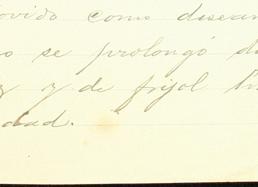 ovido como desean
o se prolongó d
z y de frijol
dad.